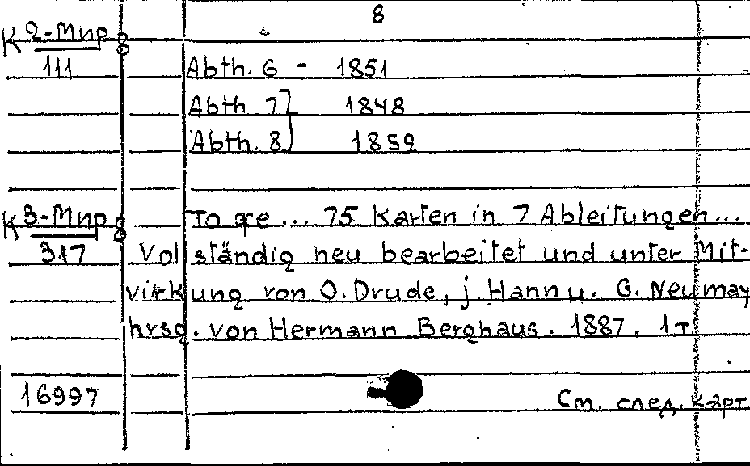 8
К 2-Мир
111
Abth. 6 - 1851
Abth 7] 1848
Abth. 8] 1859
К 3-Мир
317
То же ... 75 Karten in 7 Ableitungen...
Vollständig neu bearbeitet und unter Mit-
wirkung von O. Drude, j. Hann u. G. Neumay
hrsg. von Hermann Berghaus. 1887. 1 т
16997
См. след. карт